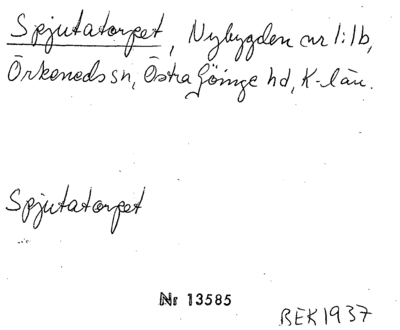 Spjutatorpet, Nybygden nr 1:1b,
Örkeneds sn, Östra Göinge hd, K-län.
Spjutatorpet
Nr 13585
BEK 1937